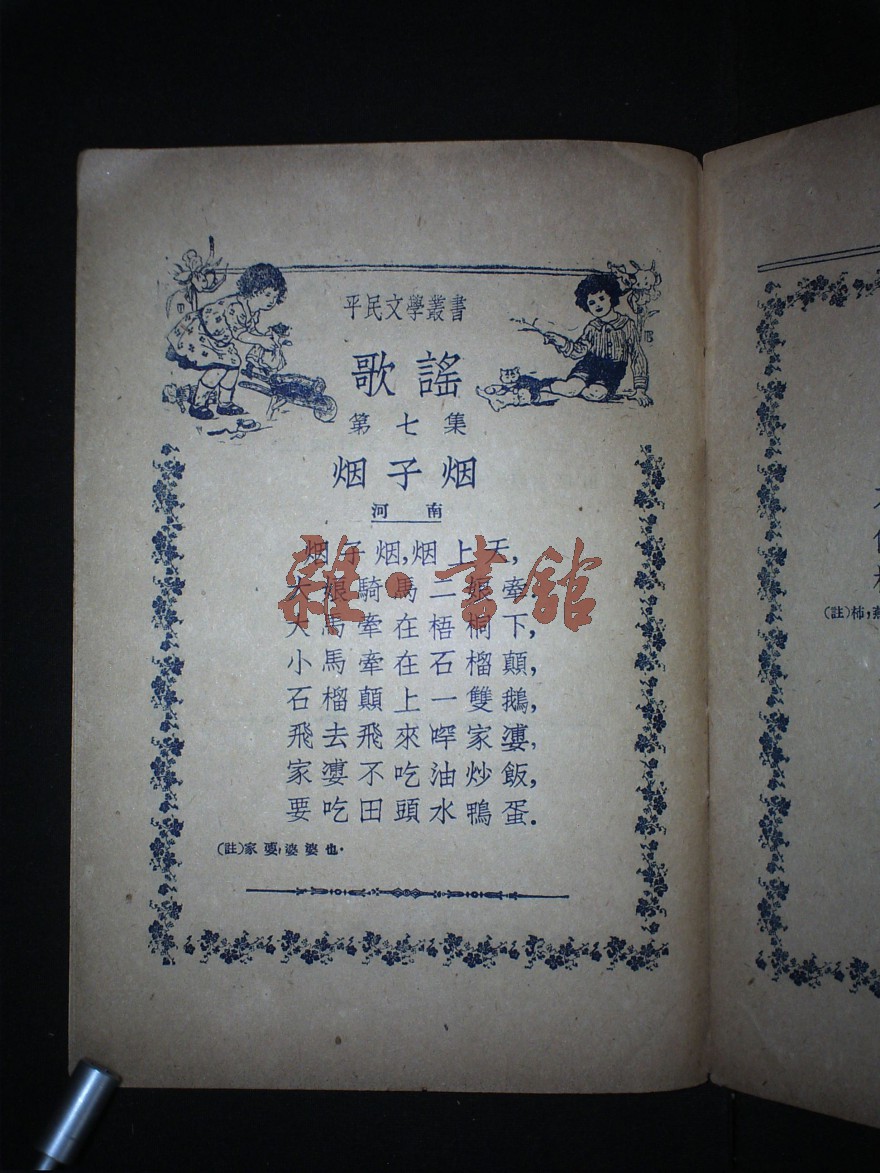 平民文學叢書
歌謠
第七集
烟子烟
河南
烟子烟,烟上天,
大娘騎馬二娘牽
大馬牽在梧桐下,
小馬牽在石榴顛,
石榴顛上一雙鵝,
飛去飛來啰家㜢,
家㜢不吃油炒飯,
要吃田頭水鴨蛋.
(註)家㜢,婆婆也.
雜·書館
(註)柿,